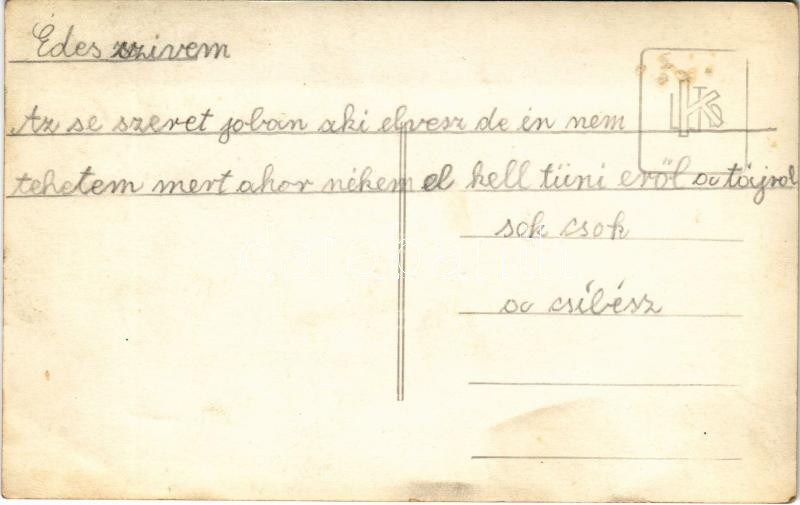 Édes szivem
Az se szeret joban aki elvesz de én nem
tehetem mert ahor nékem el kell tüni eröl a tájrol
sok csok
a csibész